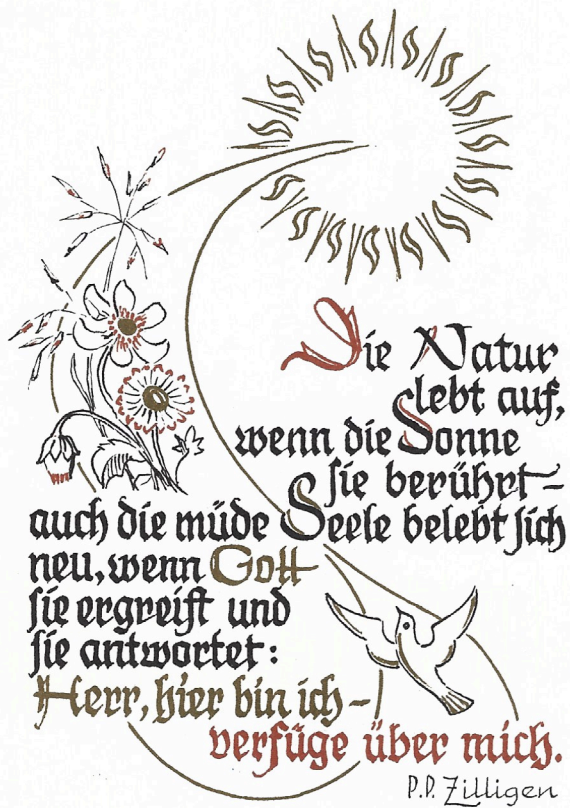 Die Natur
lebt auf,
wenn die Sonne
sie berührt–
auch die müde Seele belebt sich
neu, wenn Gott
sie ergreift und
sie antwortet:
Herr, hier bin ich–
verfüge über mich.
P.P. Zilligen